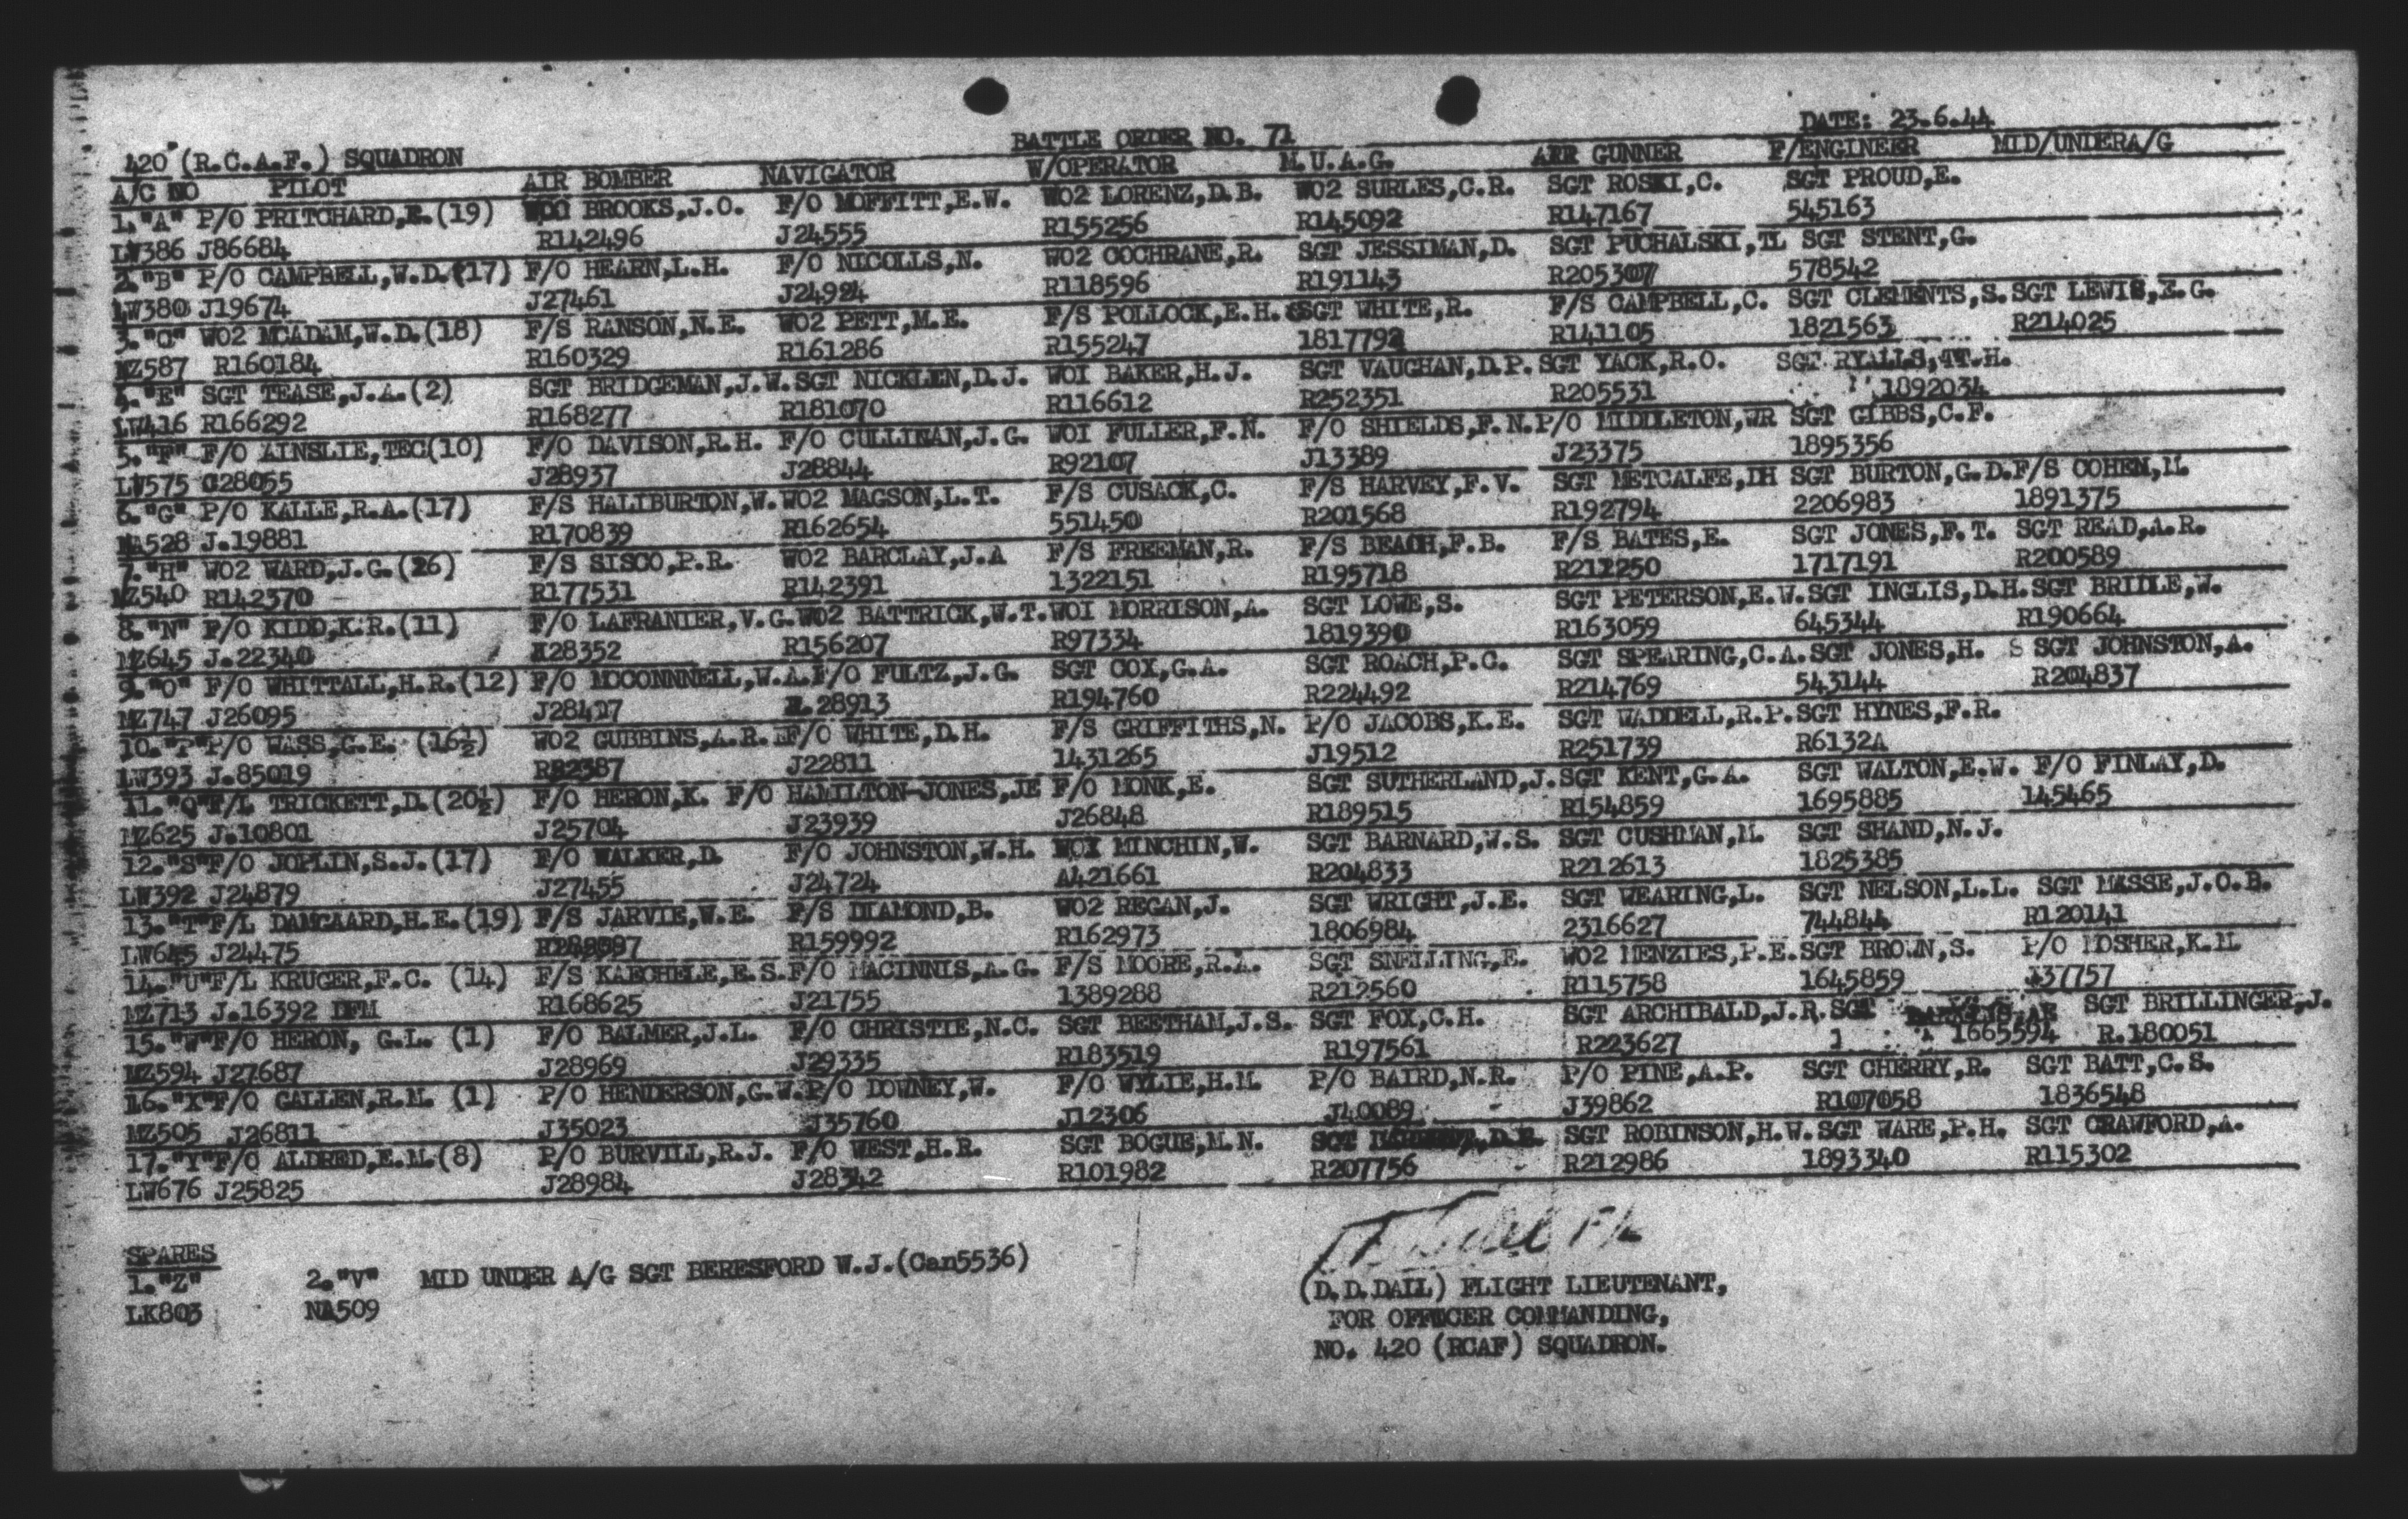 DATE: 23.6.44
BATTLE ORDER NO. 71
420 (R.C.A.F.) SQUADRON
A/C NO PILOT AIR BOMBER NAVIGATOR W/OPERATOR M.U.A.G. AIR GUNNER F/ENGINEER MID/UNDERA/G
1."A" P/O PRITCHARD,R.(19) BROOKS,J.O. F/O MOFFITT,E.W. WO2 LORENZ,D.B. WO2 SURLES,C.R. SGT ROSKI,C. SGT PROUD,E.
LW386 J86684 R142496 J24555 R155256 R145092 R147167 545163
2."B" P/O CAMPBELL,W.D.(17) F/O HEARN,L.H. F/O NICOLLS,N. WO2 COCHRANE,R. SGT JESSIMAN,D. SGT PUCHALSKI,TL SGT STENT,G.
LW380 J19674 J27461 J24924 R118596 R191143 R205307 578542
3."C" WO2 MCADAM,W.D.(18) F/S RANSON,N.E. WO2 PETT,M.E. F/S POLLOCK,E.H. SGT WHITE,R. F/S CAMPBELL,C. SGT CLEMENTS,S. SGT LEWIS,E.G.
MZ587 R160184 R160329 R161286 R155247 1817792 R141105 1821563 R214025
4."E" SGT TEASE,J.A.(2) SGT BRIDGEMAN,J.W. SGT NICKLEN,D.J. WO1 BAKER,H.J. SGT VAUGHAN,D.P. SGT YACK,R.O. SGT RYALLS,W.H.
LW416 R166292 R168277 R181070 R116612 R252351 R205531 1892034
5."F" F/O AINSLIE,TEC(10) F/O DAVISON,R.H. F/O CULLINAN,J.G. WO1 FULLER,F.N. F/O SHIELDS,F.N. P/O MIDDLETON,WR SGT GIBBS,C.F.
LW575 C28055 J28937 J28844 R92107 J13389 J23375 1895356
6."G" P/O KALLE,R.A.(17) F/S HALIBURTON,W. WO2 MAGSON,L.T. F/S CUSACK,C. F/S HARVEY,F.V. SGT METCALFE,DH SGT BURTON,G.D. F/S COHEN,M.
NA528 J.19881 R170839 R162654 551450 R201568 R192794 2206983 1891375
7."H" WO2 WARD,J.G.(26) F/S SISCO,P.R. WO2 BARCLAY,J.A F/S FREEMAN,R. F/S BEACH,F.B. F/S BATES,E. SGT JONES,F.T. SGT READ,A.R.
MZ540 R142370 R177531 R142391 1322151 R195718 R211250 1717191 R200589
8."N" F/O KIDD,K.R.(11) F/O LAFRANIER,V.G. WO2 BATTRICK,W.T. WO1 MORRISON,A. SGT LOWE,S. SGT PETERSON,E.W. SGT INGLIS,D.H. SGT BRIDLE,W.
MZ645 J.22340 J28352 R156207 R97334 1819390 R163059 645344 R190664
9."O" F/O WHITTALL,H.R.(12) F/O MCCONNNELL,W.A. F/O FULTZ,J.G. SGT COX,G.A. SGT ROACH,P.C. SGT SPEARING,C.A. SGT JONES,H. S SGT JOHNSTON,A.
MZ747 J26095 J28417 J.28913 R194760 R224492 R214769 543144 R204837
10."P" P/O WASS,C.E. (16½) WO2 GUBBINS,A.R. F/O WHITE,D.H. F/S GRIFFITHS,N. P/O JACOBS,K.E. SGT WADDELL,R.P. SGT HYNES,F.R.
LW393 J.85019 R82387 J22811 1431265 J19512 R251739 R6132A
11."Q" F/L TRICKETT,D.(20½) F/O HERON,K. F/O HAMILTON-JONES,JE F/O MONK,E. SGT SUTHERLAND,J. SGT KENT,G.A. SGT WALTON,E.W. F/O FINLAY,D.
MZ625 J.10801 J25704 J23939 J26848 R189515 R154859 1695885 145465
12."S" F/O JOPLIN,S.J.(17) F/O WALKER,D. F/O JOHNSTON,W.H. WO1 MINCHIN,W. SGT BARNARD,W.S. SGT CUSHMAN,M. SGT SHAND,N.J.
LW392 J24879 J27455 J24724 A421661 R204833 R212613 1825385
13."T" F/L DAMGAARD,H.E.(19) F/S JARVIE,W.E. F/S DIAMOND,B. WO2 REGAN,J. SGT WRIGHT,J.E. SGT WEARING,L. SGT NELSON,L.L. SGT MASSE,J.O.B.
LW645 J24475 R159992 R162973 1806984 2316627 744844 R120141
14."U" F/L KRUGER,F.C. (14) F/S KAECHELE,E.S. F/O MACINNIS,A.G. F/S MOORE,R.A. SGT SNELLING,E. WO2 MENZIES,P.E. SGT BROWN,S. P/O MOSHER,K.M.
MZ713 J.16392 DFM R168625 J21755 1389288 R212560 R115758 1645859 J37757
15."W" F/O HERON, G.L. (1) F/O BALMER,J.L. F/O CHRISTIE,N.C. SGT BEETHAM,J.S. SGT FOX,C.H. SGT ARCHIBALD,J.R. SGT SGT BRILLINGER,J.
MZ594 J27687 J28969 J29335 R183519 R197561 R223627 1665594 R.180051
16."X" F/O GALLEN,R.M. (1) P/O HENDERSON,G.W. P/O DOWNEY,W. F/O WYLIE,H.M. P/O BAIRD,N.R. P/O PINE,A.P. SGT CHERRY,R. SGT BATT,C.S.
MZ505 J26811 J35023 J35760 J12306 J40089 J39862 R107058 1836548
17."Y" F/O ALDRED,E.M.(8) P/O BURVILL,R.J. F/O WEST,H.R. SGT BOGUE,M.N. SGT SGT ROBINSON,H.W. SGT WARE,P.H. SGT CRAWFORD,A.
LW676 J25825 J28984 J28342 R101982 R207756 R212986 1893340 R115302
SPARES
1."Z" 2."V" MID UNDER A/G SGT BERESFORD W.J.(Can5536)
LK803 NA509
(D.D.DAIL) FLIGHT LIEUTENANT,
FOR OFFICER COMMANDING,
NO. 420 (RCAF) SQUADRON.